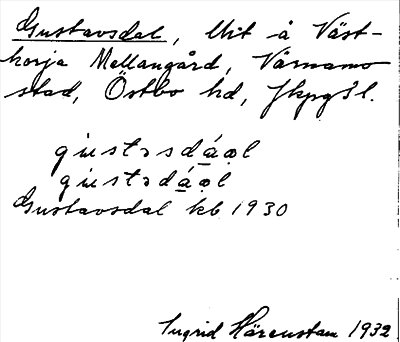 Gustavsdal, lht å Väst-
horja Mellangård, Värnamo
stad, Östbo hd, Jkpg l.
gustɔsdá̱ƍl
gustɔdá̱ƍl
Gustavsdal kb 1930
Ingrid Härenstam 1932